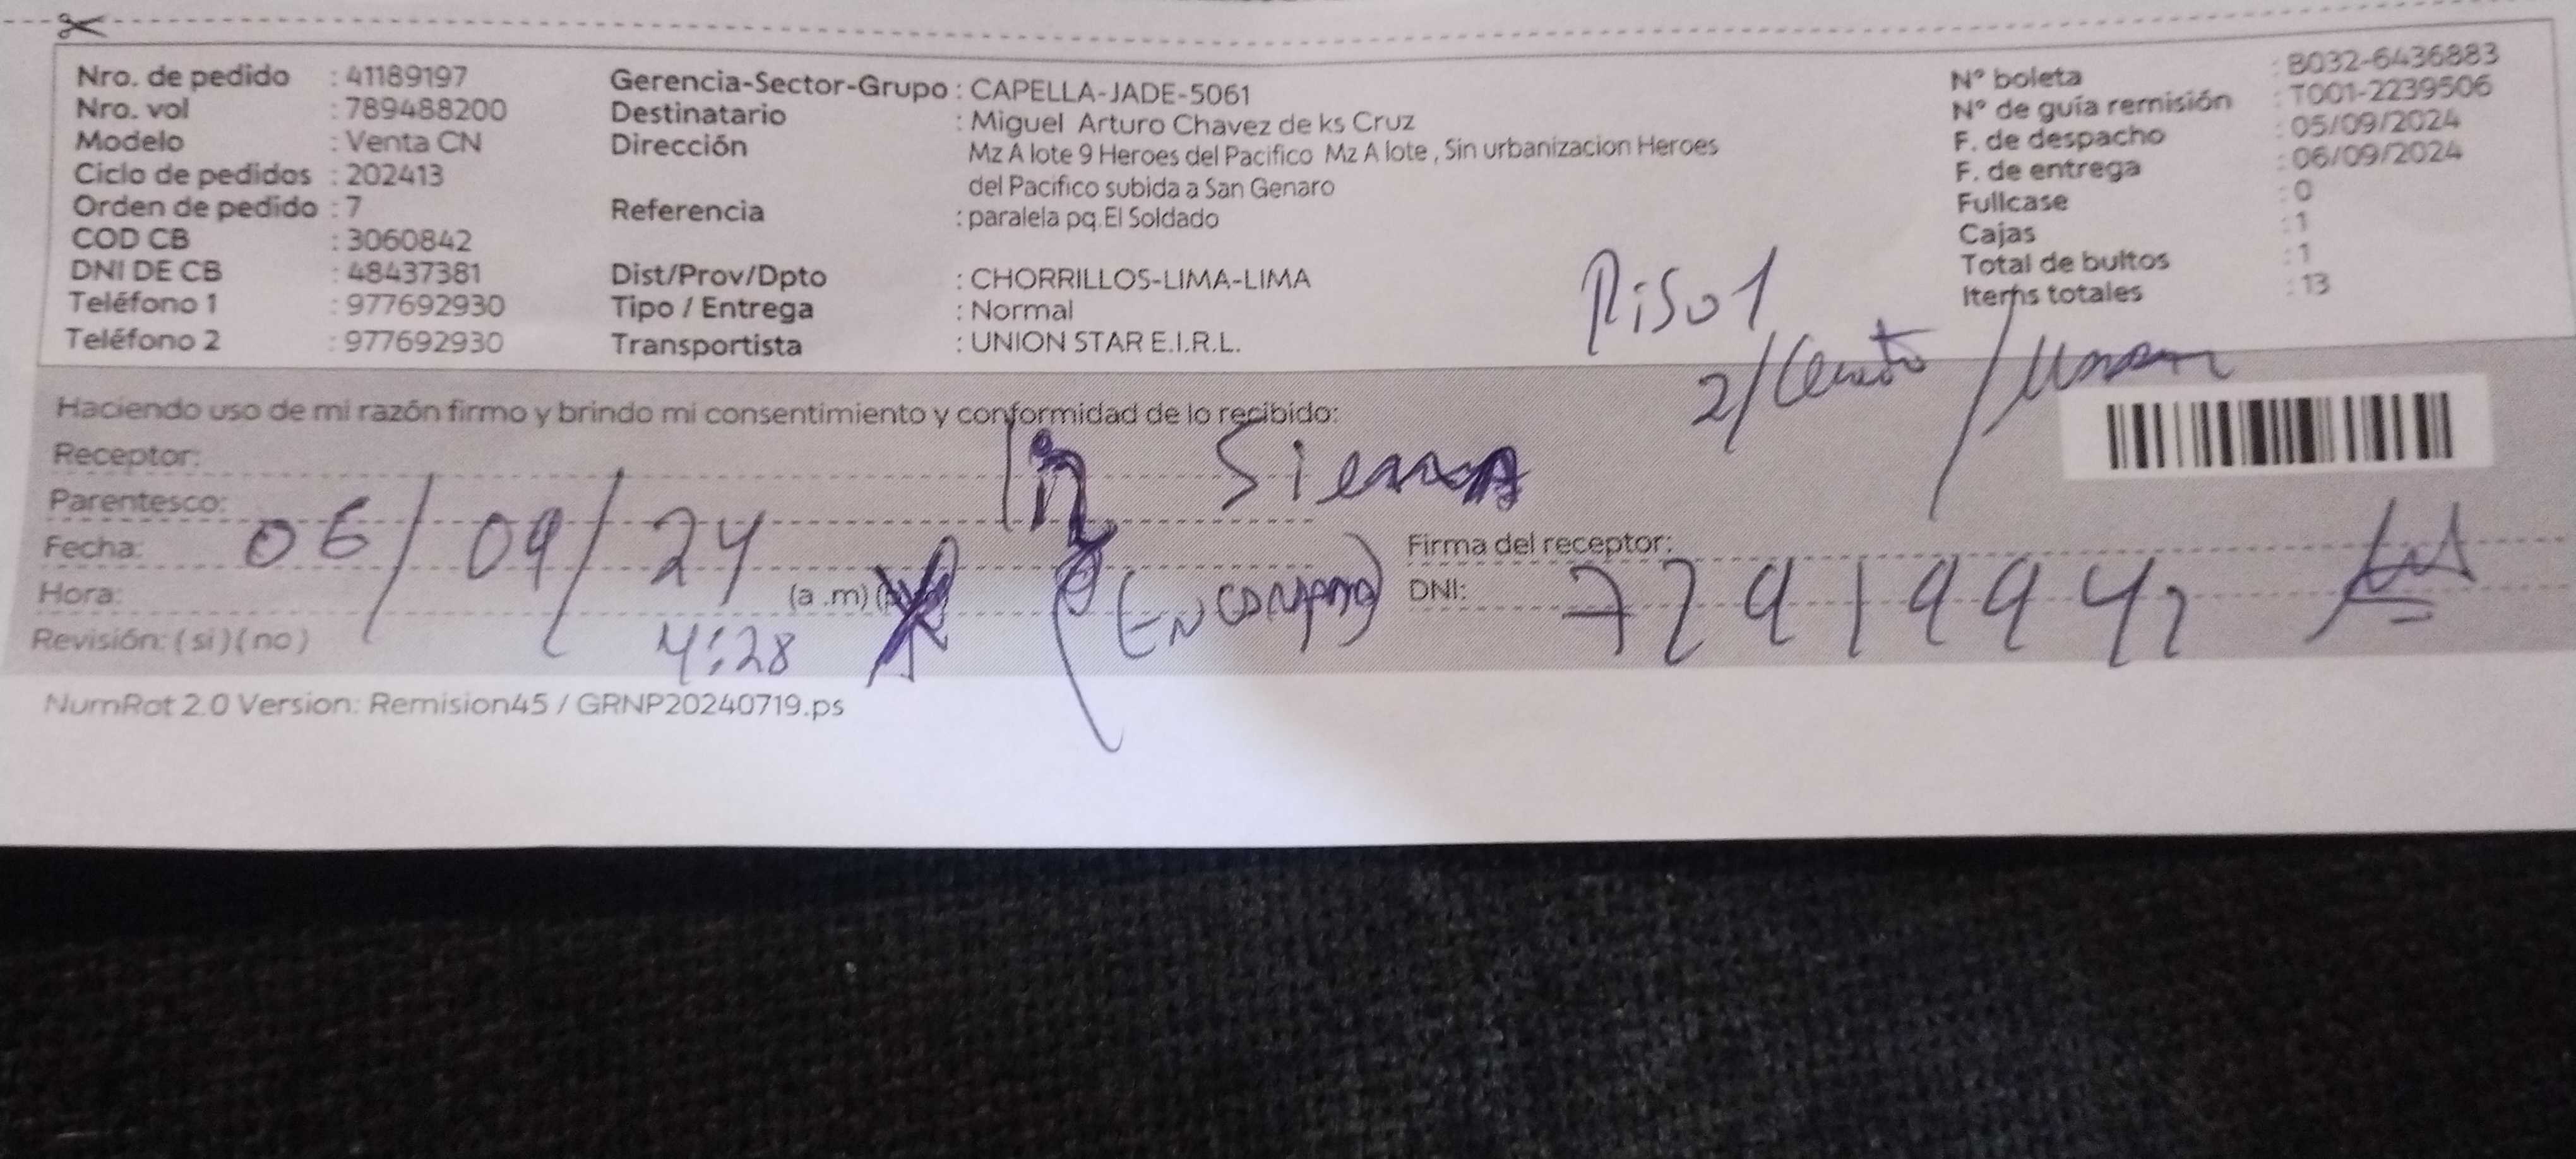 Nro. de pedido : 41189197
Nro. vol : 789488200
Modelo : Venta CN
Ciclo de pedidos : 202413
Orden de pedido : 7
COD CB : 3060842
DNI DE CB : 48437381
Teléfono 1 : 977692930
Teléfono 2 : 977692930
Gerencia-Sector-Grupo : CAPELLA-JADE-5061
Destinatario : Miguel Arturo Chavez de ks Cruz
Dirección Mz A lote 9 Heroes del Pacifico Mz A lote , Sin urbanizacion Heroes
del Pacifico subida a San Genaro
Referencia : paralela pq.El Soldado
Dist/Prov/Dpto : CHORRILLOS-LIMA-LIMA
Tipo / Entrega : Normal
Transportista : UNION STAR E.I.R.L.
N° boleta : B032-6436883
N° de guía remisión : T001-2239506
F. de despacho : 05/09/2024
F. de entrega : 06/09/2024
Fullcase : 0
Cajas : 1
Total de bultos : 1
Items totales : 13
PiSo 1
2/
Haciendo uso de mi razón firmo y brindo mi consentimiento y conformidad de lo recibido:
Receptor:
Parentesco:
Fecha: 06/09/24
Hora: (a .m)
4:28
Revisión: ( si ) ( no )
Firma del receptor:
DNI: 72919942
NumRot 2.0 Version: Remision45 / GRNP20240719.ps